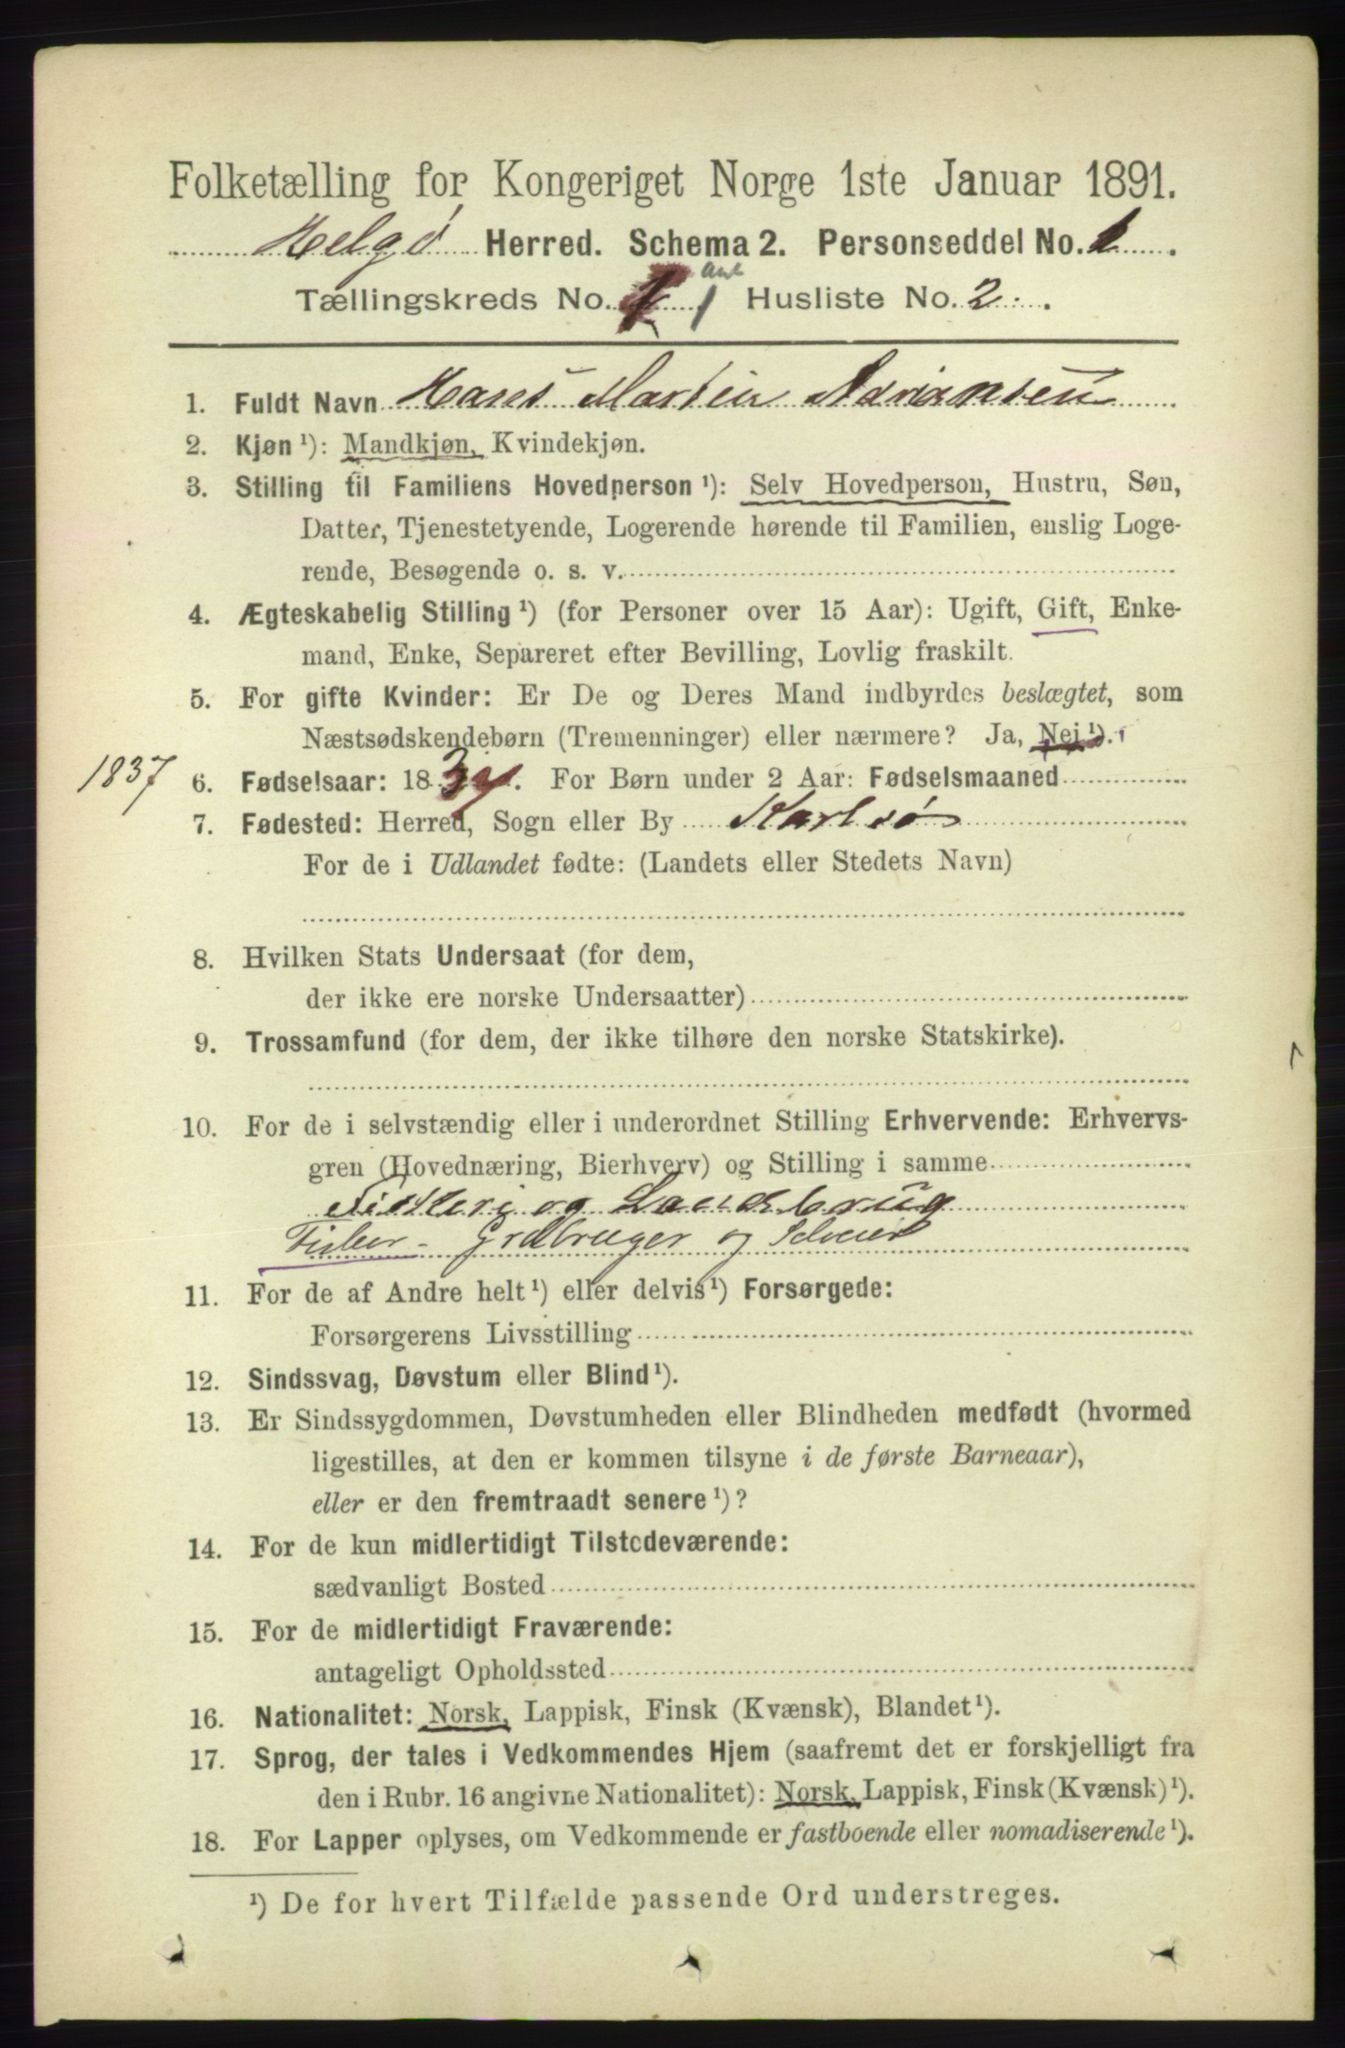 Folketælling for Kongeriget Norge 1ste Januar 1891.
Helgø Herred. Schema 2. Personseddel No. 1.
Tællingskreds No. 1 Husliste No. 2.
1. Fuldt Navn Hans Martin Adriansen
2. Kjøn ¹): Mandkjøn, Kvindekjøn.
3. Stilling til Familiens Hovedperson ¹): Selv Hovedperson, Hustru, Søn,
Datter, Tjenestetyende, Logerende hørende til Familien, enslig Loge-
rende, Besøgende o. s. v.
4. Ægteskabelig Stilling ¹) (for Personer over 15 Aar): Ugift, Gift, Enke-
mand, Enke, Separeret efter Bevilling, Lovlig fraskilt.
5. For gifte Kvinder: Er De og Deres Mand indbyrdes beslægtet, som
Næstsødskendebørn (Tremenninger) eller nærmere? Ja, Nei ¹).
1837 6. Fødselsaar: 1837. For Børn under 2 Aar: Fødselsmaaned
7. Fødested: Herred, Sogn eller By Karlsø
For de i Udlandet fødte: (Landets eller Stedets Navn)
8. Hvilken Stats Undersaat (for dem,
der ikke ere norske Undersaatter)
9. Trossamfund (for dem, der ikke tilhøre den norske Statskirke).
10. For de i selvstændig eller i underordnet Stilling Erhvervende: Erhvervs-
gren (Hovednæring, Bierhverv) og Stilling i samme
Fiskeri og Landbrug
Fisker - grdbruger og Selveier
11. For de af Andre helt ¹) eller delvis ¹) Forsørgede:
Forsørgerens Livsstilling
12. Sindssvag, Døvstum eller Blind ¹).
13. Er Sindssygdommen, Døvstumheden eller Blindheden medfødt (hvormed
ligestilles, at den er kommen tilsyne i de første Barneaar),
eller er den fremtraadt senere ¹)?
14. For de kun midlertidigt Tilstedeværende:
sædvanligt Bosted
15. For de midlertidigt Fraværende:
antageligt Opholdssted
16. Nationalitet: Norsk, Lappisk, Finsk (Kvænsk), Blandet ¹).
17. Sprog, der tales i Vedkommendes Hjem (saafremt det er forskjelligt fra
den i Rubr. 16 angivne Nationalitet): Norsk, Lappisk, Finsk (Kvænsk) ¹).
18. For Lapper oplyses, om Vedkommende er fastboende eller nomadiserende ¹).
¹) De for hvert Tilfælde passende Ord understreges.